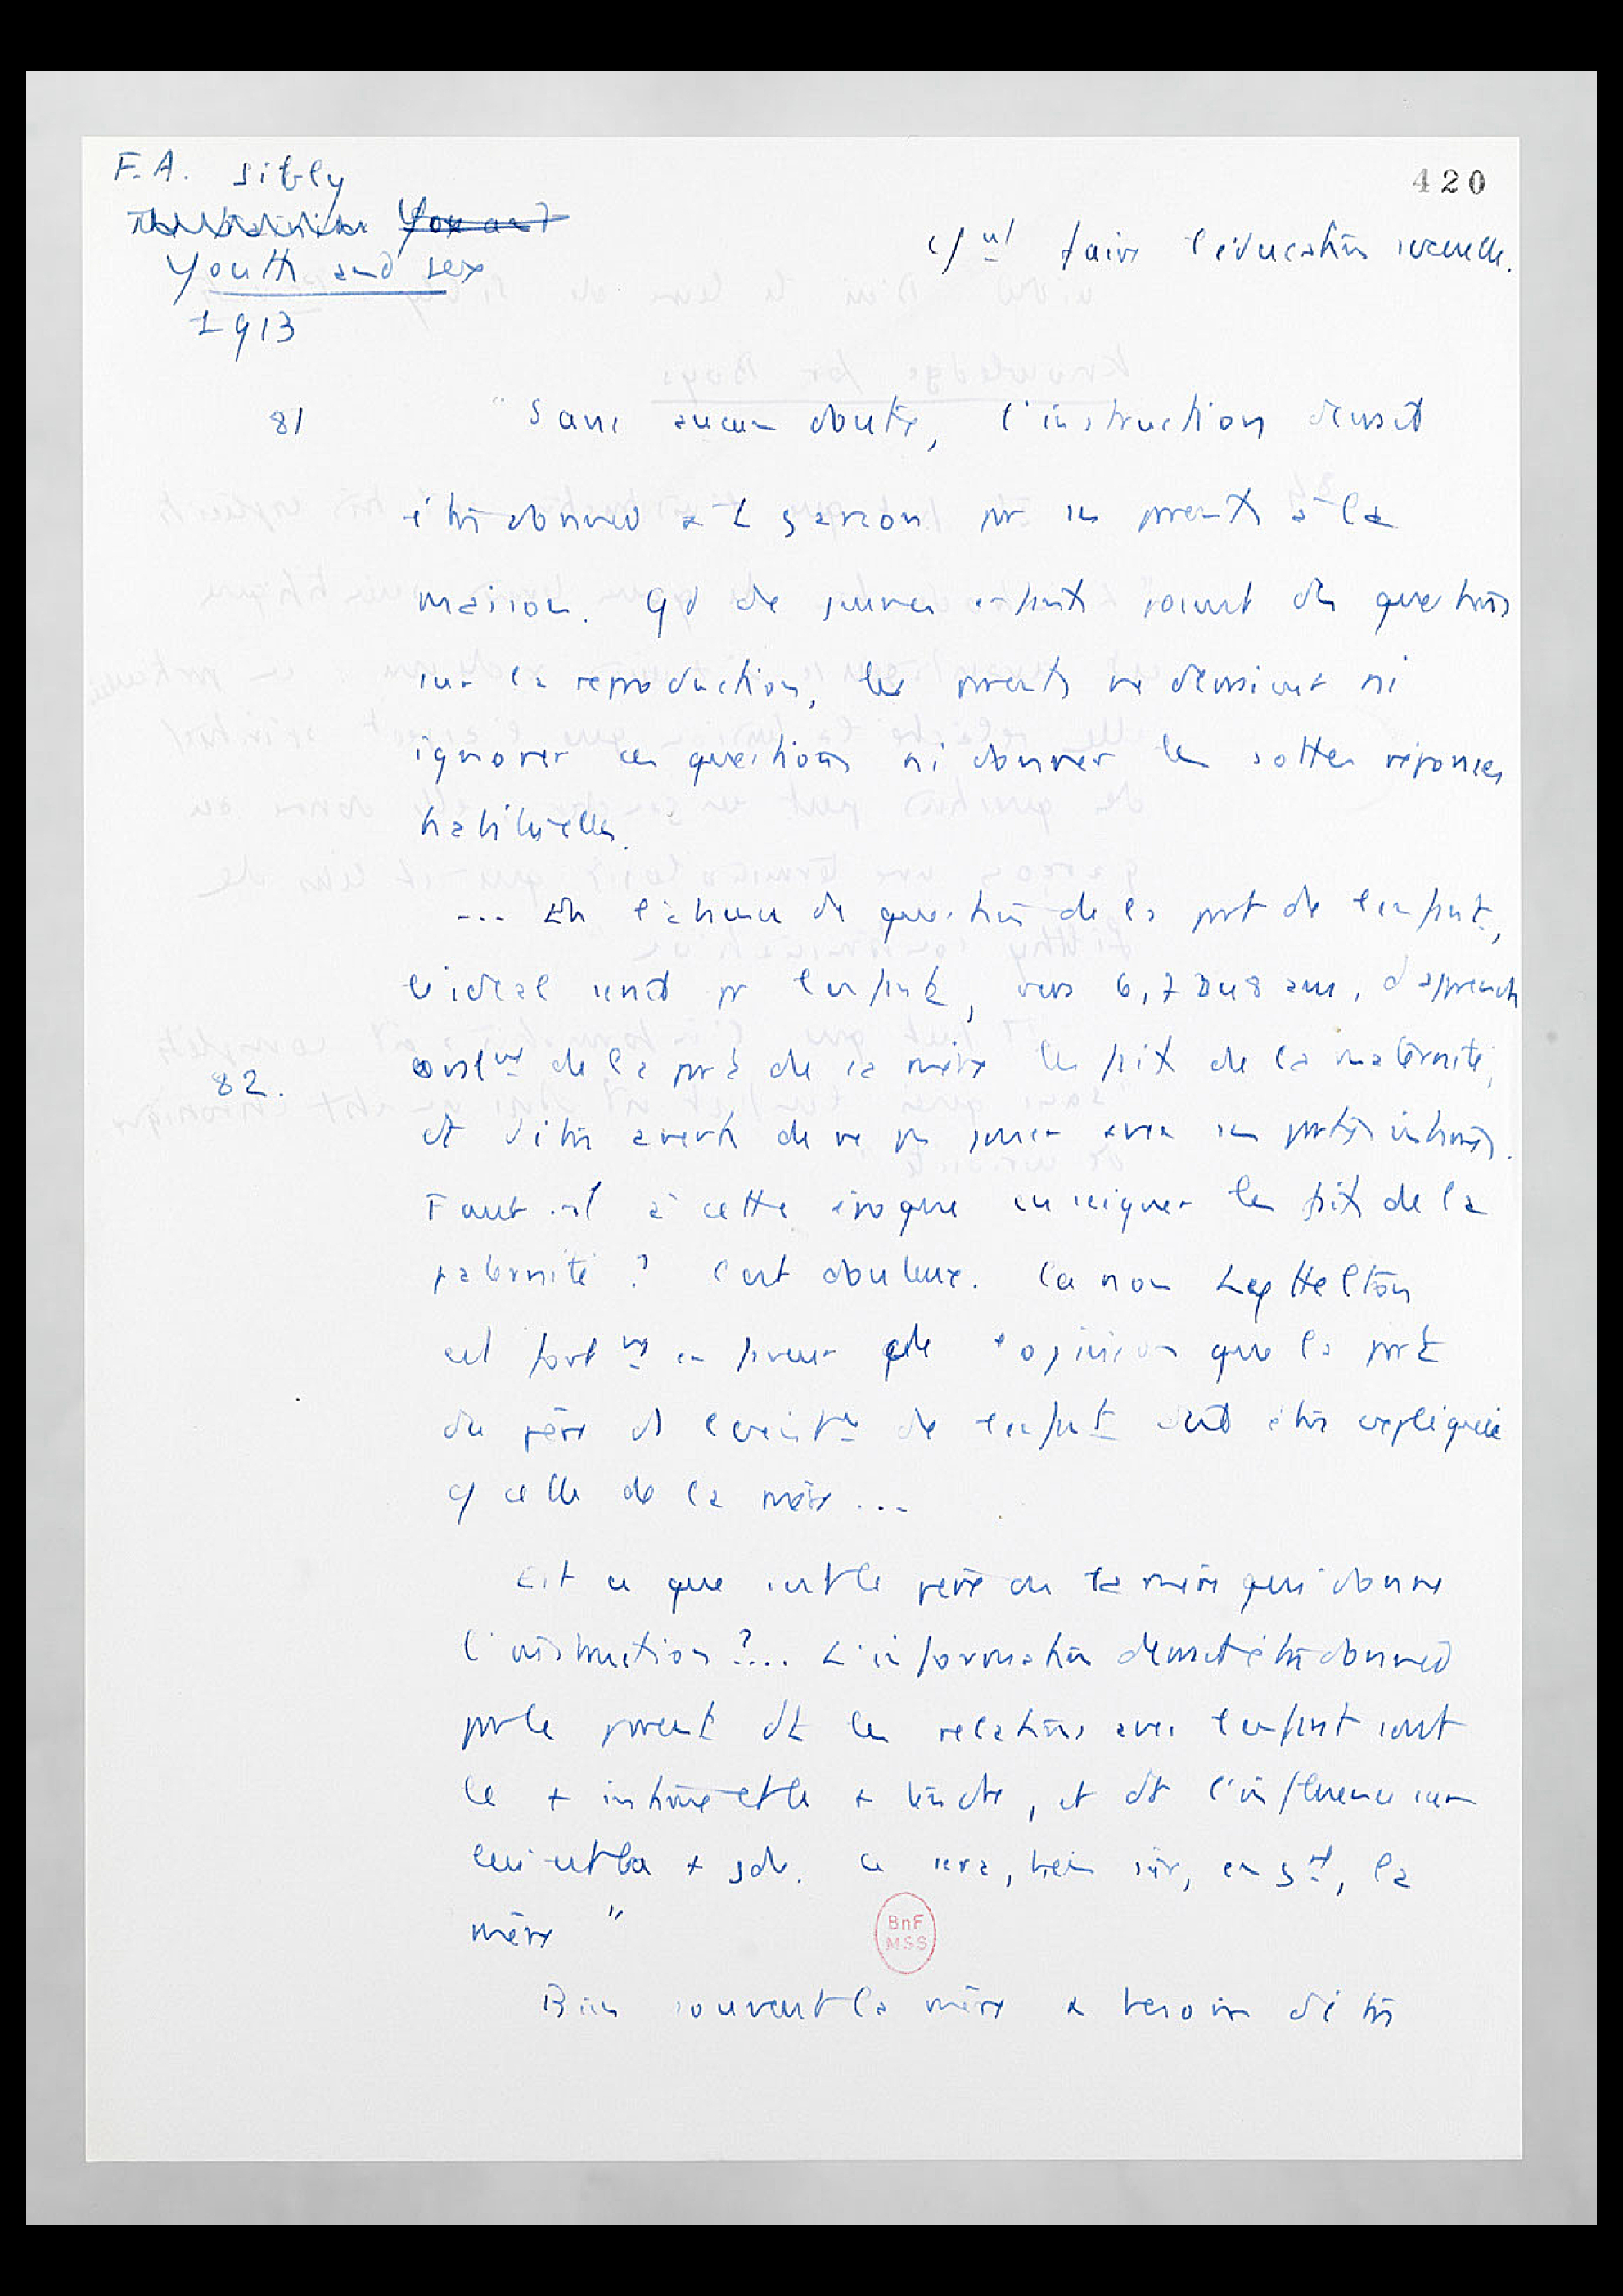 F.A. Sibly
420
Youth and sex
Cᵗ faire l'éducation sexuelle.
1913
81 "Sans aucun doute, l'instruction devrait
être donnée à L garçon par ses parents à la
maison. Qd de jeunes enfants posent des questions
sur la reproduction, les parents ne devraient ni
ignorer ces questions ni donner les sottes réponses
habituelles.
... En l'absence de questions de la part de l'enfant,
l'idéal serait pr l'enfant, vers 6, 7 ou 8 ans, d'apprendre
de la part de sa mère les faits de la maternité,
82.
et d'être averti de ne pas jouer avec ses parties intimes.
Faut-il à cette époque enseigner les faits de la
paternité ? C'est douteux. Canon Lyttelton
est fortᵗ en faveur de l'opinion que la part
du père ds l'existence de l'enfant doit être expliquée
c/ celle de la mère ...
Est ce que c'est le père ou la mère qui donne
l'instruction ?... L'information devrait être donnée
par le parent dt les relations avec l'enfant sont
le + intime et le + tendre, et dt l'influence sur
lui est la + gde. Ce sera, bien sûr, en gᵃˡ, la
mère "
BnF
MSS
Bien souvent la mère a besoin d'être